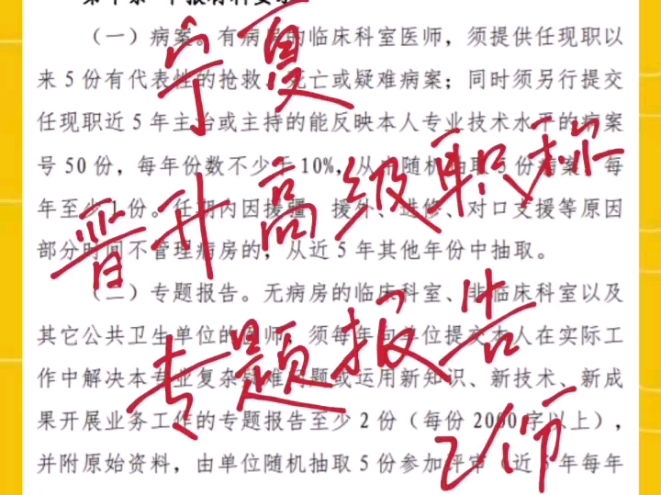 （一）病案。有病房的临床科室医师，须提供任现职以
来5份有代表性的抢救、死亡或疑难病案；同时须另行提交
任现职近5年主治或主持的能反映本人专业技术水平的病案
号50份，每年份数不少于10%，从中随机抽取5份病案，每
年至少1份。任期内因援疆、援外、进修、对口支援等原因
部分时间不管理病房的，从近5年其他年份中抽取。
（二）专题报告。无病房的临床科室、非临床科室以及
其它公共卫生单位的医师，须每年向单位提交本人在实际工
作中解决本专业复杂疑难问题或运用新知识、新技术、新成
果开展业务工作的专题报告至少2份（每份2000字以上），
并附原始资料，由单位随机抽取5份参加评审（近5年每年
宁夏
晋升高级职称
专题报告
2份